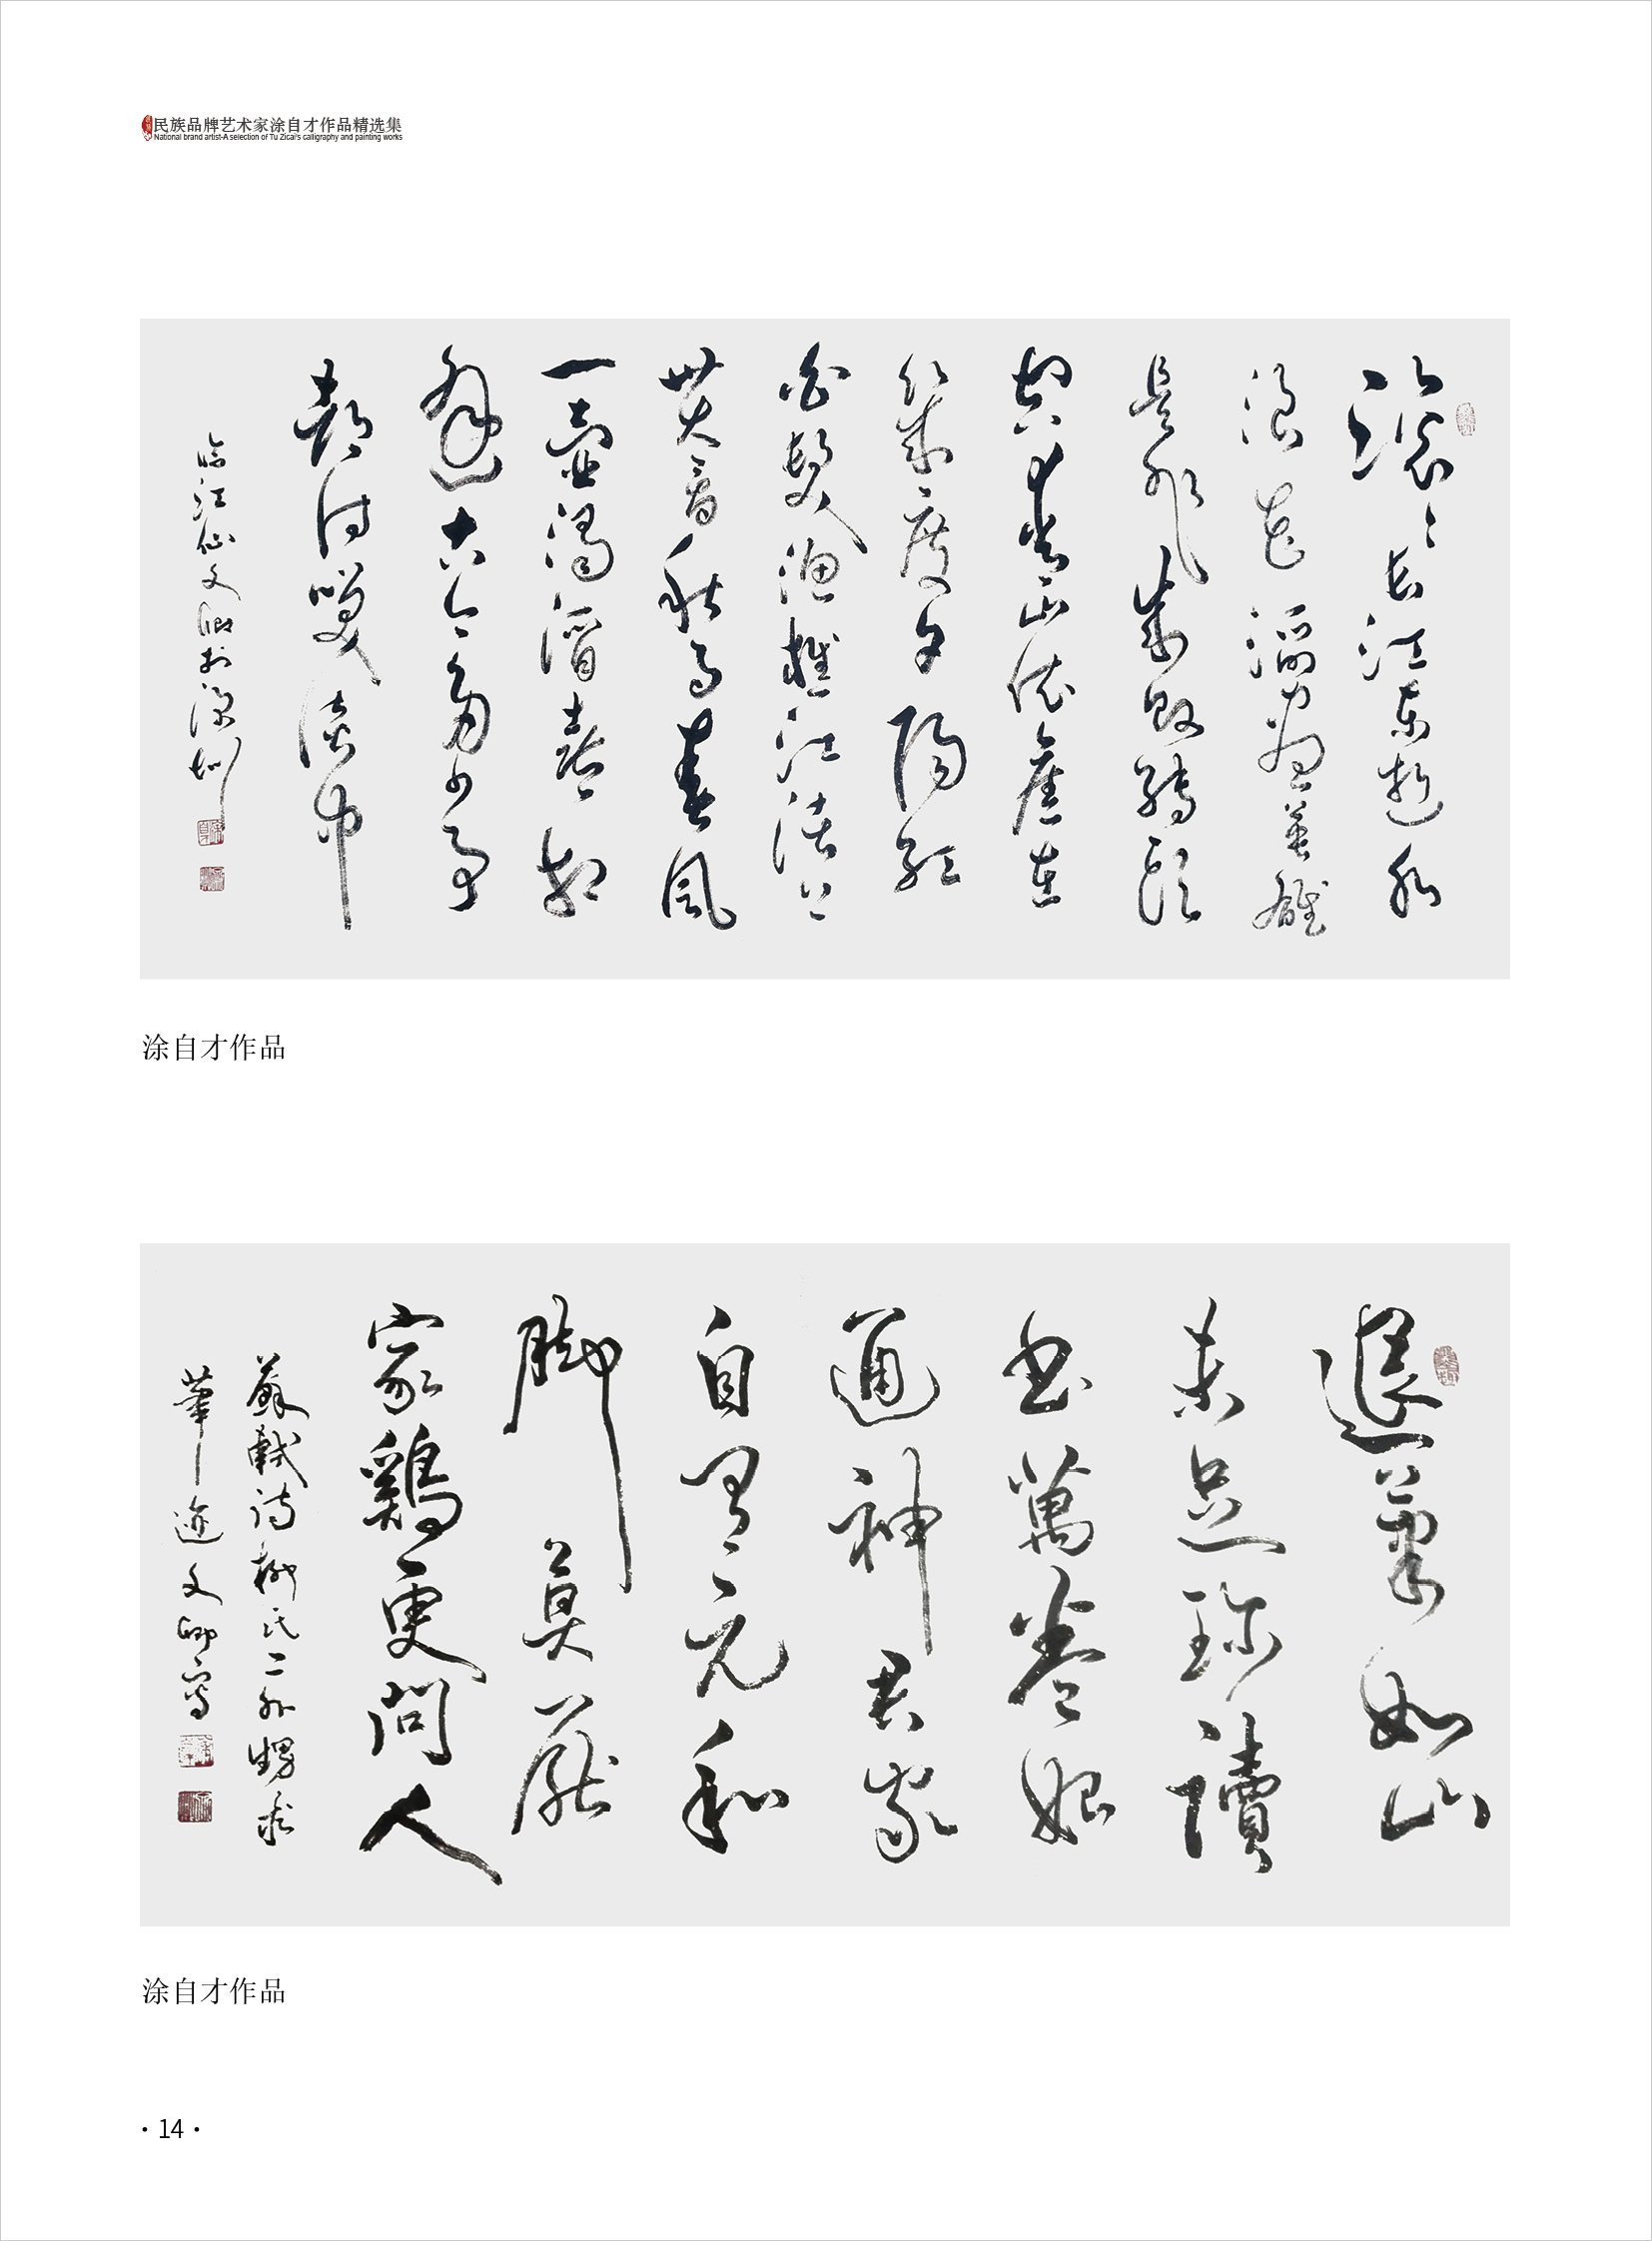 民族品牌艺术家涂自才作品精选集
National brand artist-A selection of Tu Zicai's calligraphy and painting works
滚〻长江东逝水
浪花滔尽英雄
是非成败转头
空青山依舊在
幾度夕陽红
白髮渔樵江渚上
惯看秋月春風
一壺濁酒喜相
逢古今多少事
都付笑谈中
临江仙文卿於深圳
涂自才作品
退筆如山
未足珍讀
书萬卷始
通神君家
自有元和
脚莫厭
家鷄更问人
蘇軾诗柳氏二外甥求
筆迹文卿寫
涂自才作品
·14·